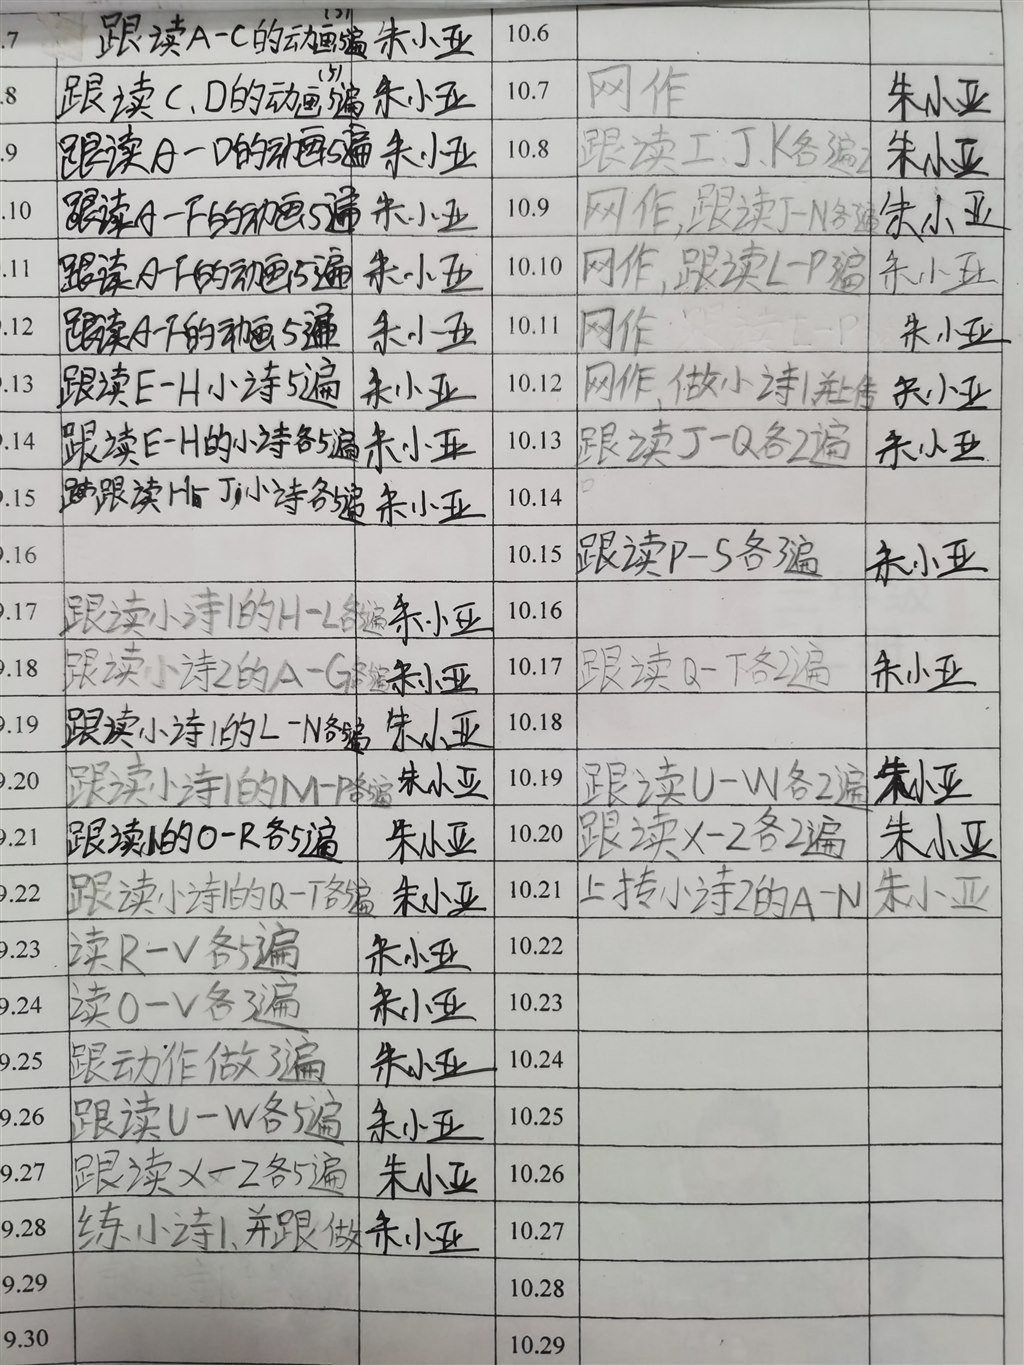 .7 跟读A-C的动画5遍 朱小亚 10.6
(5)
.8 跟读C、D的动画5遍 朱小亚 10.7 网作 朱小亚
(5)
.9 跟读A-D的动画5遍 朱小亚 10.8 跟读I、J、K各遍2 朱小亚
.10 跟读A-F的动画5遍 朱小亚 10.9 网作,跟读J-N各遍 朱小亚
.11 跟读A-F的动画5遍 朱小亚 10.10 网作,跟读L-P遍 朱小亚
.12 跟读A-F的动画5遍 朱小亚 10.11 网作 朱小亚
.13 跟读E-H小诗5遍 朱小亚 10.12 网作,做小诗1并上传 朱小亚
.14 跟读E-H的小诗各5遍 朱小亚 10.13 跟读J-Q各2遍 朱小亚
.15 跟读H-J小诗各5遍 朱小亚 10.14
9.16 10.15 跟读P-S各3遍 朱小亚
9.17 跟读小诗1的H-L各遍 朱小亚 10.16
9.18 跟读小诗2的A-G各遍 朱小亚 10.17 跟读Q-T各2遍 朱小亚
9.19 跟读小诗1的L-N各5遍 朱小亚 10.18
9.20 跟读小诗1的M-P各遍 朱小亚 10.19 跟读U-W各2遍 朱小亚
9.21 跟读1的O-R各5遍 朱小亚 10.20 跟读X-Z各2遍 朱小亚
9.22 跟读小诗1的Q-T各5遍 朱小亚 10.21 上抟小诗2的A-N 朱小亚
9.23 读R-V各5遍 朱小亚 10.22
9.24 读O-V各3遍 朱小亚 10.23
9.25 跟动作做3遍 朱小亚 10.24
9.26 跟读U-W各5遍 朱小亚 10.25
9.27 跟读X-Z各5遍 朱小亚 10.26
9.28 练小诗1、并跟做 朱小亚 10.27
9.29 10.28
9.30 10.29